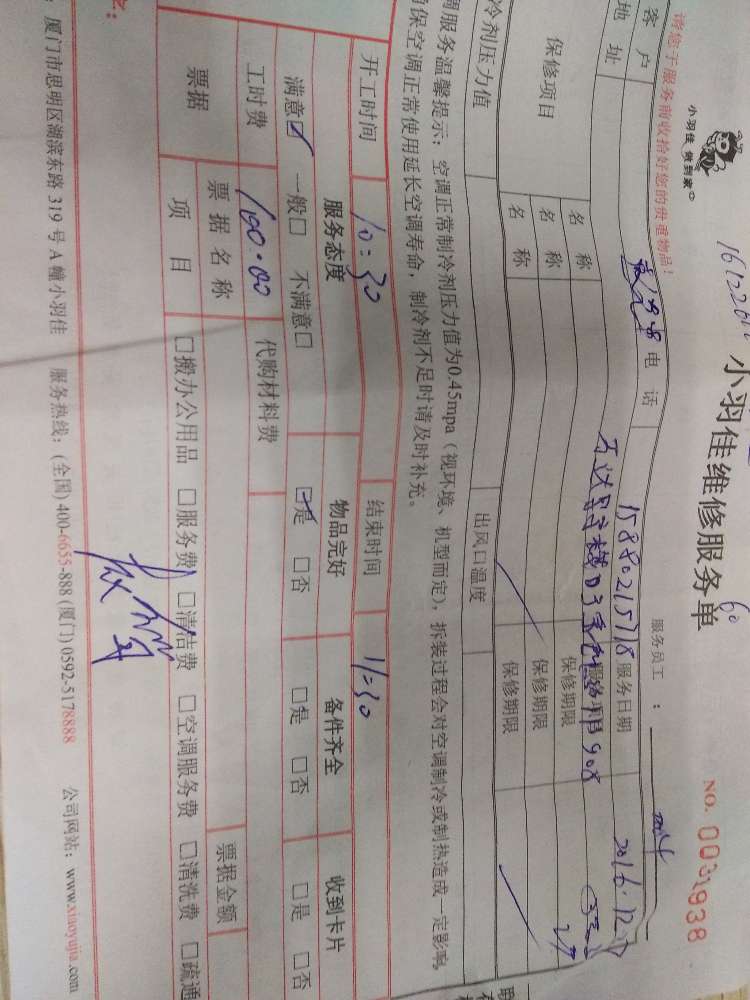 小羽佳 做到家
小羽佳维修服务单
NO. 0031938
请您于服务前收拾好您的贵重物品！
服务员工：
客户
电话 15880215718 服务日期 2016.12.27
地址
保修项目 名称 保修期限
名称 保修期限
名称 保修期限
冷剂压力值 出风口温度
调服务温馨提示：空调正常制冷剂压力值为0.45mpa（视环境、机型而定），拆装过程会对空调制冷或制热造成一定影响，
确保空调正常使用延长空调寿命，制冷剂不足时请及时补充。
开工时间 10:30 结束时间 11:30
服务态度 物品完好 备件齐全 收到卡片
满意☑ 一般□ 不满意□ ☑是 □否 □是 □否 □是 □否
工时费 100.00 代购材料费
票据 票据名称 票据金额
项目 □搬办公用品 □服务费 □清洁费 □空调服务费 □清洗费 □疏通
厦门市思明区湖滨东路 319 号 A 幢小羽佳 服务热线：(全国) 400-6655-888 (厦门) 0592-5178888 公司网站：www.xiaoyujia.com